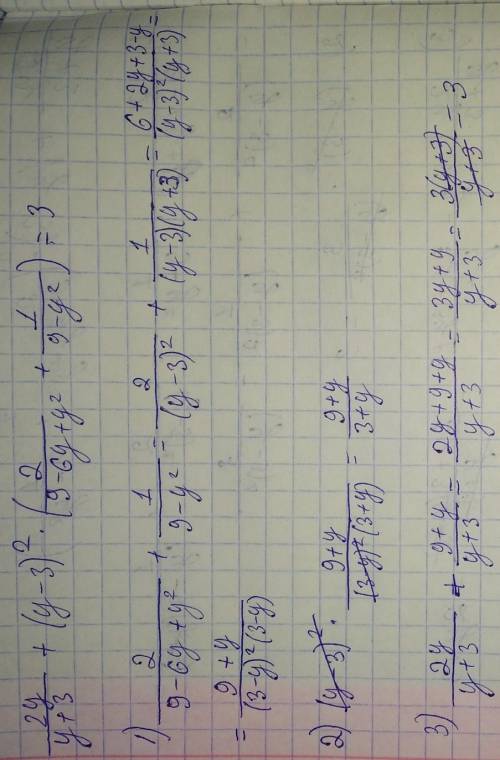 2y/(y+3) + (y-3)² · (2/(9-6y+y²) + 1/(9-y²)) = 3
1) 2/(9-6y+y²) + 1/(9-y²) = 2/(y-3)² + 1/((y-3)(y+3)) = (6+2y+3-y)/((y-3)²(y+3)) =
= (9+y)/((3-y)²(3-y))
2) (y-3)² · (9+y)/((3-y)²(3+y)) = (9+y)/(3+y)
3) 2y/(y+3) + (9+y)/(y+3) = (2y+9+y)/(y+3) = (3y+9)/(y+3) = 3(y+3)/(y+3) = 3